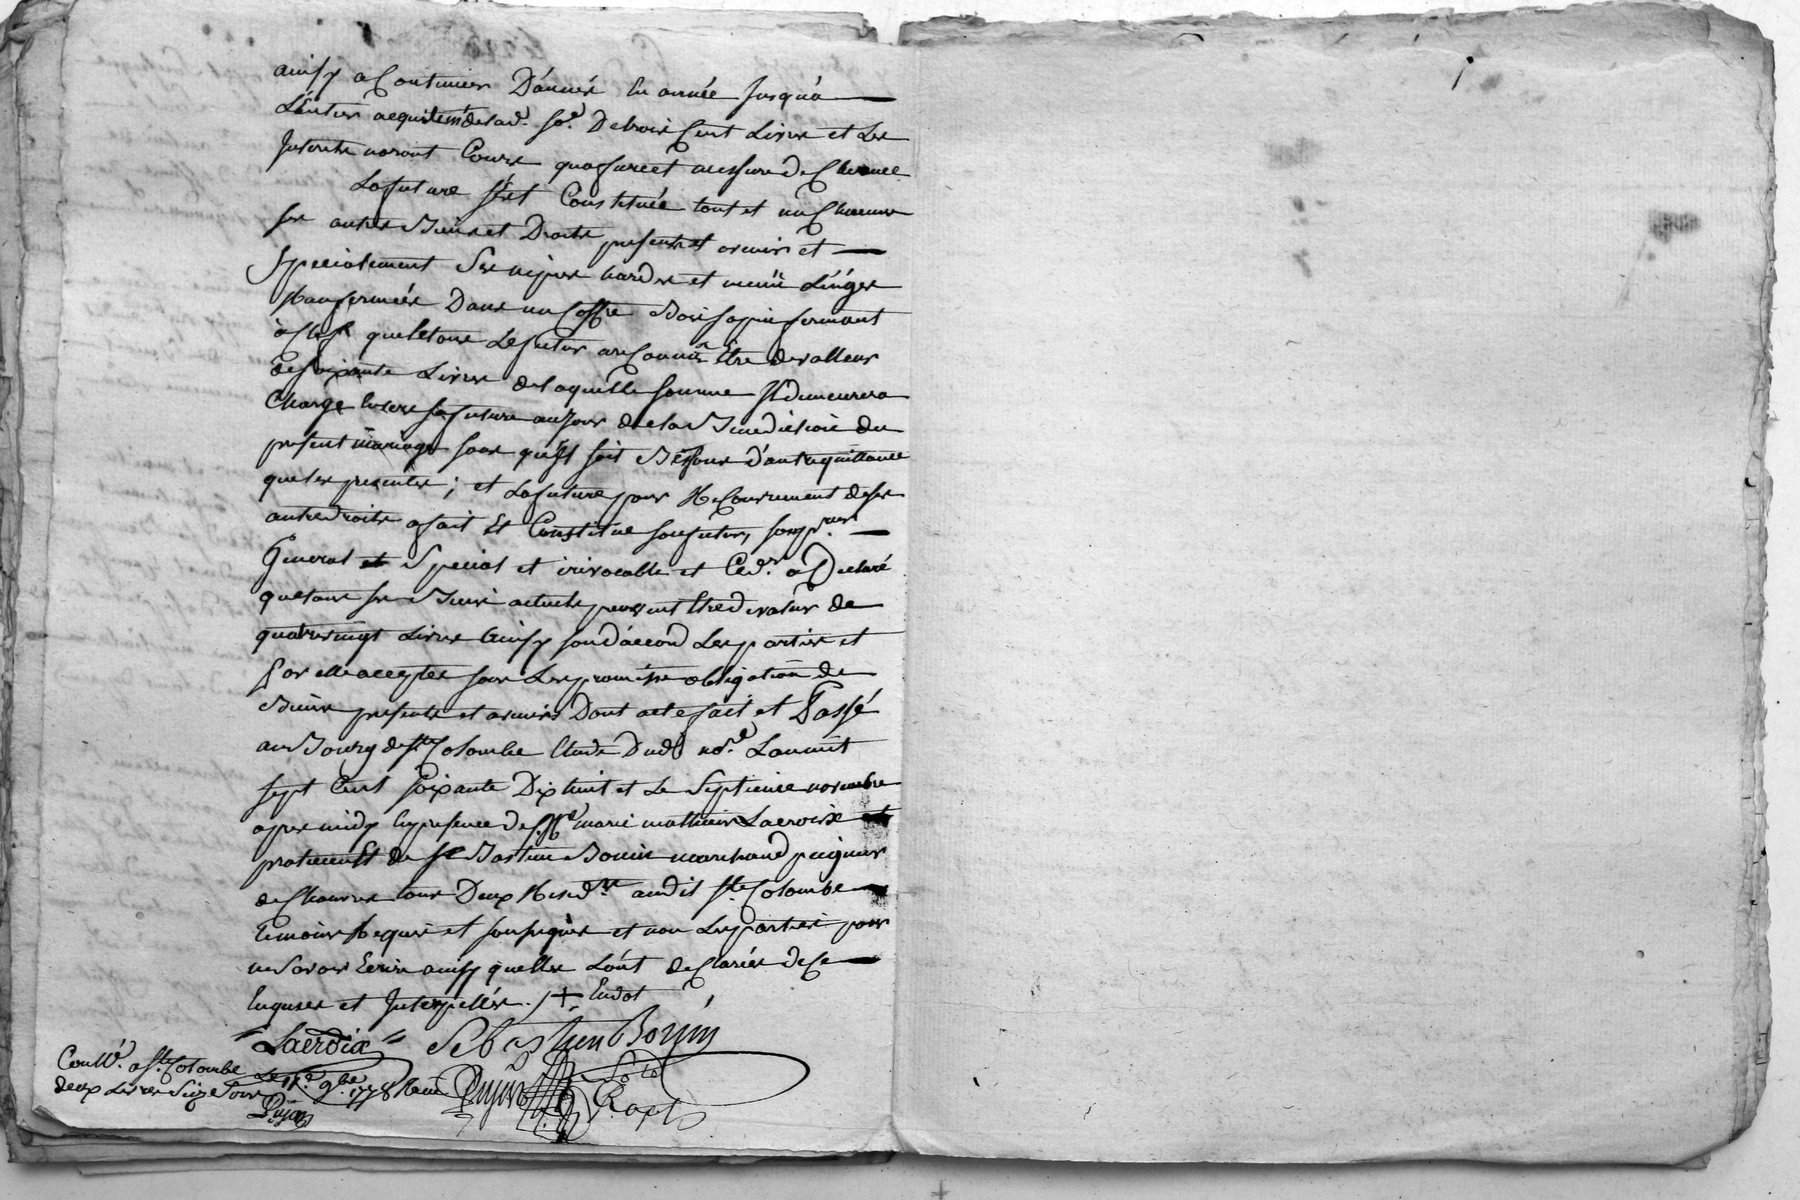 ainsy a Continuer D'année En année Jusqu'a
L'Entier acquitem.t delad.e So.e De trois Cent Livres et Les
Interets noront Cours qua fur et mesure de Chence
La future s'Est Constituée tout et un Chacuns
ses autres Biens et Droits presents et avenirs et
specialement Ses nipes hardes et menü Linges
Ranfermées Dans un Coffre Bois sapin fermant
à Clef que le tout Le futur a reConnu Etre de valleur
de soixante Livres de laquelle somme Il demeurera
Charge Envers sa future au Jour de la Benediction du
present mariage sans qu'Il soit Besoins d'autre quittance
que les presentes ; et La future pour Recouvrement de ses
autre droits a fait Et Constitue son futur, son pr.eur
General et Special et irivocable et Led.r a Declaré
que tous ses Biens actuels peuvent Etre de valeur de
quatrevingt Livres Ainsy sond'accord Les parties et
Par elle acceptée sous Les promesse obligation de
Biens presents et avenirs Dont acte fait et Passé
au Bourg de S.te Colombe Etude Dud. no.re L'an mil
sept Cent soixante Dix huit et Le Septieme novembre
apres midy En presence de S.r M.e marie mathieu Lacroix
praticien Et de S.r Bastien Bonin marchand peigneur
de Chanvre tous Deux Resid.ts audit S.te Colombe
temoins Requis et soussignés et non Les parties pour
ne Savoir Ecrire ainsy quelles L'ont declarées de Ce
Enquises et Interpellés ./+ Endot
Lacroix Sébastien Bonin
Conllé. a S.te Colombe Le 17.e 9bre 1778 Reçu
deux Livres Seize Sous
Dujas